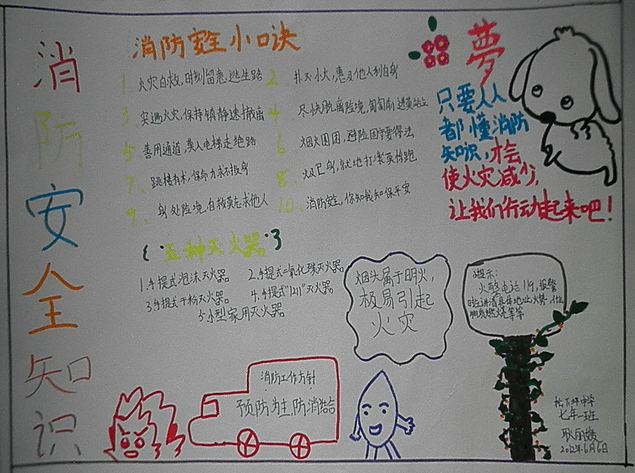 消防安全知识
消防安全小口诀
1. 火灾自救,时刻留意,逃生路
2. 扑灭小火,惠及他人利自身
3. 突遇火灾,保持镇静速撤离
4. 尽快脱离险境,
5. 善用通道,莫入电梯走绝路
6. 烟火围困,避险固守要得法
7. 跳楼有术,保命力求
8. 火已及身,就地打滚莫惊跑
9. 身处险境,自救莫忘求他人
10. 消防安全,你知我知保平安
五种灭火器
1.手提式泡沫灭火器
2.手提式二氧化碳灭火器
3.手提式干粉灭火器。
4.手提式"1211"灭火器
5.小型家用灭火器
梦
只要人人
都懂消防
知识,才会
使火灾减少,
让我们行动起来吧!
烟头属于明火,
极易引起
火灾
提示:
火警电话119,报警
消防工作方针
预防为主,防消结合
七年一班
2012年6月6日